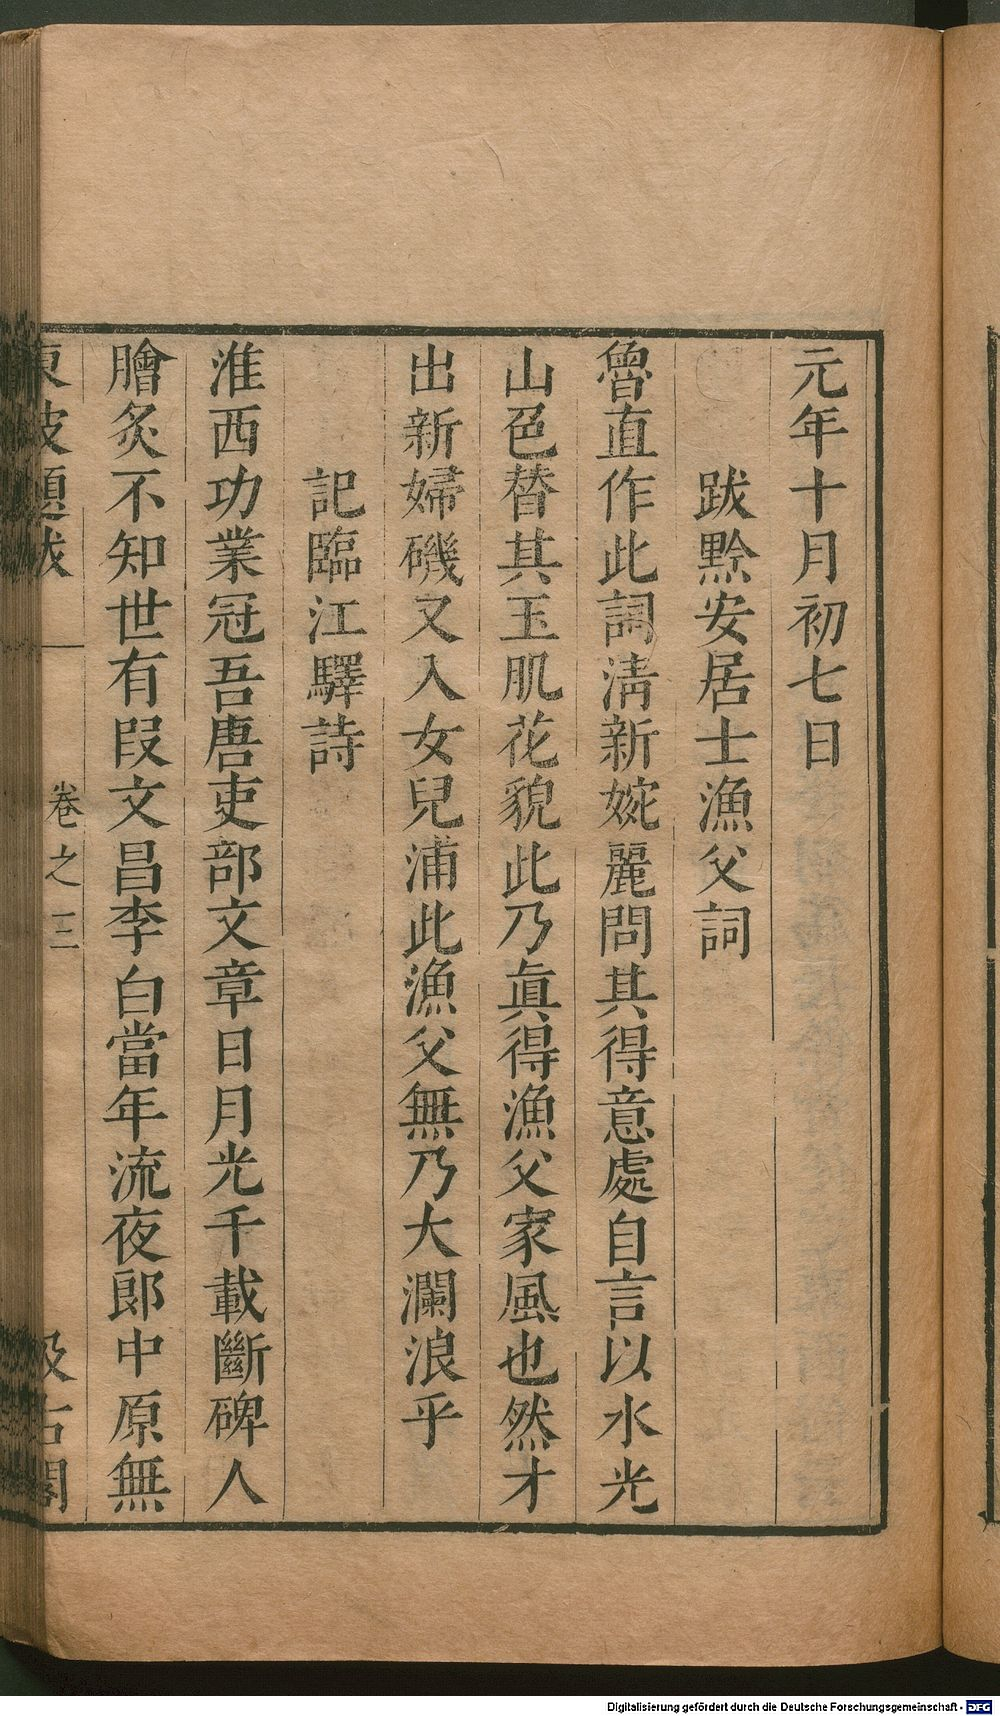 元年十月初七日
跋黔安居士漁父詞
魯直作此詞淸新婉麗問其得意處自言以水光
山色替其玉肌花貌此乃眞得漁父家風也然才
出新婦磯又入女兒浦此漁父無乃大瀾浪乎
記臨江驛詩
淮西功業冠吾唐吏部文章日月光千載斷碑人
膾炙不知世有叚文昌李白當年流夜郞中原無
東坡題跋
卷之三
汲古閣
Digitalisierung gefördert durch die Deutsche Forschungsgemeinschaft - DFG